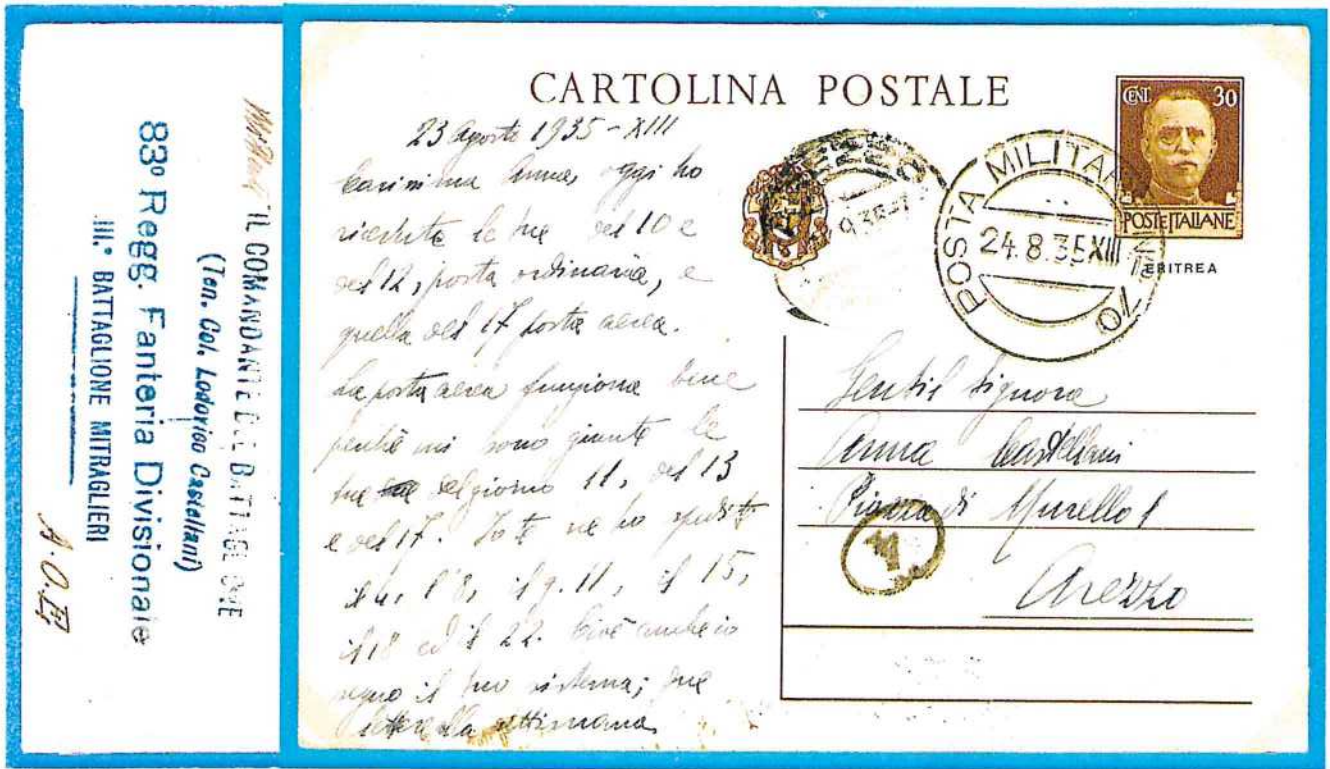 IL COMANDANTE DEL BATTAGLIONE
(Ten. Col. Lodovico Castellani)
83º Regg. Fanteria Divisionale
III.º BATTAGLIONE MITRAGLIERI
A.O.
CARTOLINA POSTALE
CENT. 30
POSTE ITALIANE
ERITREA
POSTA MILITA
24.8.35 XIII
23 Agosto 1935-XIII
Carissima Anna, oggi ho
ricevute le tue del 10 e
del 12, posta ordinaria, e
quella del 17 posta aerea.
La posta aerea funziona bene
perchè mi sono giunte le
tue del giorno 11, del 13
e del 17. Io te ne ho spedite
il 4, l'8, il g. 11, il 15,
il 18 ed il 22. Cioè anche io
seguo il tuo sistema; due
lettere alla settimana
Gentil Signora
Anna Castellani
Piazza di Murello 1
Arezzo